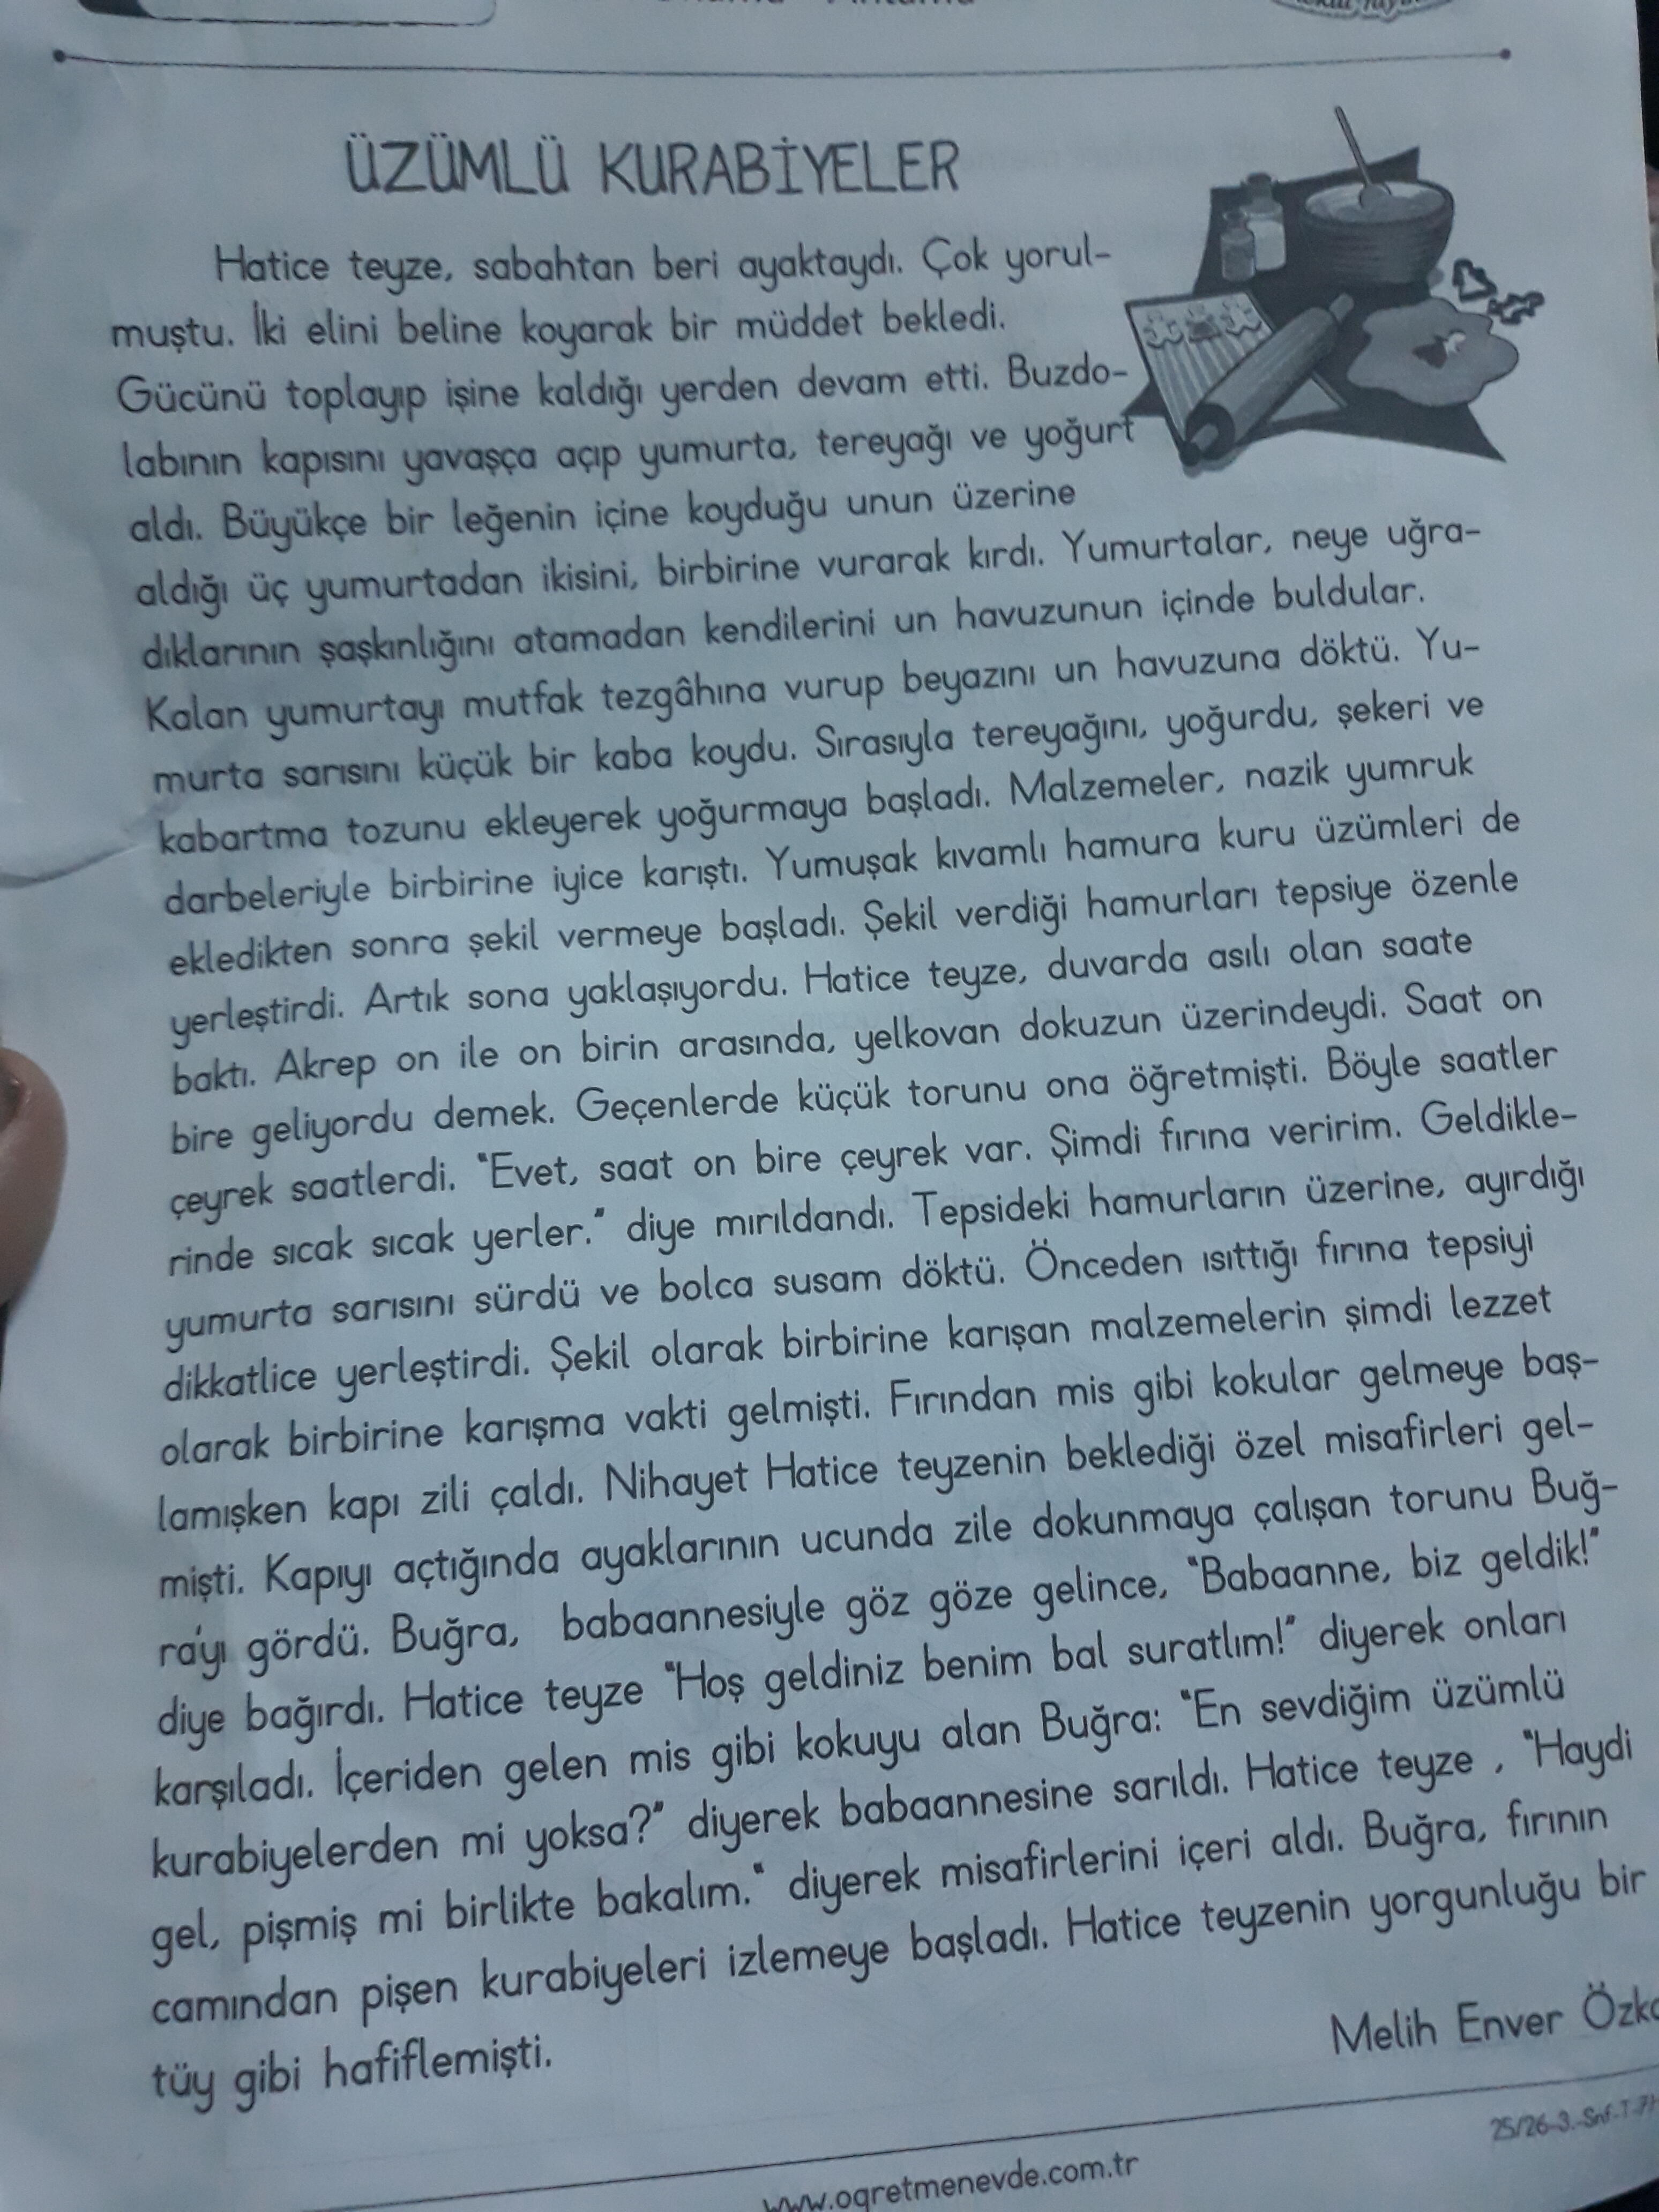 ÜZÜMLÜ KURABİYELER
Hatice teyze, sabahtan beri ayaktaydı. Çok yorul-
muştu. İki elini beline koyarak bir müddet bekledi.
Gücünü toplayıp işine kaldığı yerden devam etti. Buzdo-
labının kapısını yavaşça açıp yumurta, tereyağı ve yoğurt
aldı. Büyükçe bir leğenin içine koyduğu unun üzerine
aldığı üç yumurtadan ikisini, birbirine vurarak kırdı. Yumurtalar, neye uğra-
dıklarının şaşkınlığını atamadan kendilerini un havuzunun içinde buldular.
Kalan yumurtayı mutfak tezgâhına vurup beyazını un havuzuna döktü. Yu-
murta sarısını küçük bir kaba koydu. Sırasıyla tereyağını, yoğurdu, şekeri ve
kabartma tozunu ekleyerek yoğurmaya başladı. Malzemeler, nazik yumruk
darbeleriyle birbirine iyice karıştı. Yumuşak kıvamlı hamura kuru üzümleri de
ekledikten sonra şekil vermeye başladı. Şekil verdiği hamurları tepsiye özenle
yerleştirdi. Artık sona yaklaşıyordu. Hatice teyze, duvarda asılı olan saate
baktı. Akrep on ile on birin arasında, yelkovan dokuzun üzerindeydi. Saat on
bire geliyordu demek. Geçenlerde küçük torunu ona öğretmişti. Böyle saatler
çeyrek saatlerdi. "Evet, saat on bire çeyrek var. Şimdi fırına veririm. Geldikle-
rinde sıcak sıcak yerler." diye mırıldandı. Tepsideki hamurların üzerine, ayırdığı
yumurta sarısını sürdü ve bolca susam döktü. Önceden ısıttığı fırına tepsiyi
dikkatlice yerleştirdi. Şekil olarak birbirine karışan malzemelerin şimdi lezzet
olarak birbirine karışma vakti gelmişti. Fırından mis gibi kokular gelmeye baş-
lamışken kapı zili çaldı. Nihayet Hatice teyzenin beklediği özel misafirleri gel-
mişti. Kapıyı açtığında ayaklarının ucunda zile dokunmaya çalışan torunu Buğ-
ra'yı gördü. Buğra, babaannesiyle göz göze gelince, "Babaanne, biz geldik!"
diye bağırdı. Hatice teyze "Hoş geldiniz benim bal suratlım!" diyerek onları
karşıladı. İçeriden gelen mis gibi kokuyu alan Buğra: "En sevdiğim üzümlü
kurabiyelerden mi yoksa?" diyerek babaannesine sarıldı. Hatice teyze , "Haydi
gel, pişmiş mi birlikte bakalım." diyerek misafirlerini içeri aldı. Buğra, fırının
camından pişen kurabiyeleri izlemeye başladı. Hatice teyzenin yorgunluğu bir
tüy gibi hafiflemişti.
Melih Enver
25/26-3.-Snf-T-
www.ogretmenevde.com.tr